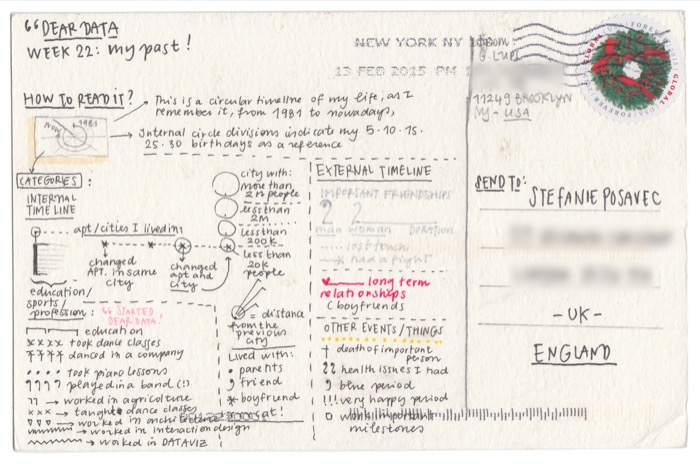 “DEAR DATA
WEEK 22: my past!
NEW YORK NY
13 FEB 2015 PM
From:
G. LUPI
11249 BROOKLYN
NY - USA
GLOBAL
FOREVER
HOW TO READ IT?
This is a circular timeline of my life, as I
remember it, from 1981 to nowadays,
now
1981
Internal circle divisions indicate my 5. 10. 15.
25. 30 birthdays as a reference
CATEGORIES:
INTERNAL
TIME LINE
apt/cities I lived in:
changed
APT. in same
city
changed
apt and
city
education/
sports/
profession:
“STARTED
DEAR DATA!
education
xxxx took dance classes
danced in a company
.... took piano lessons
played in a band (!)
worked in agriculture
xxx → taught dance classes
worked in architecture
worked in interaction design
worked in DATAVIZ
city with:
more than
2M people
less than
2M
less than
200k
less than
20k
people
= distance
from the
previous
city
Lived with:
• parents
friend
* boyfriend
cat!
EXTERNAL TIMELINE
IMPORTANT FRIENDSHIPS
man woman DURATION
.... lost touch
* had a fight
long term
relationships
(boyfriends
OTHER EVENTS/THINGS
† death of important
person
health issues I had
blue period
!!! very happy period
o work important
milestones
SEND TO:
STEFANIE POSAVEC
- UK -
ENGLAND